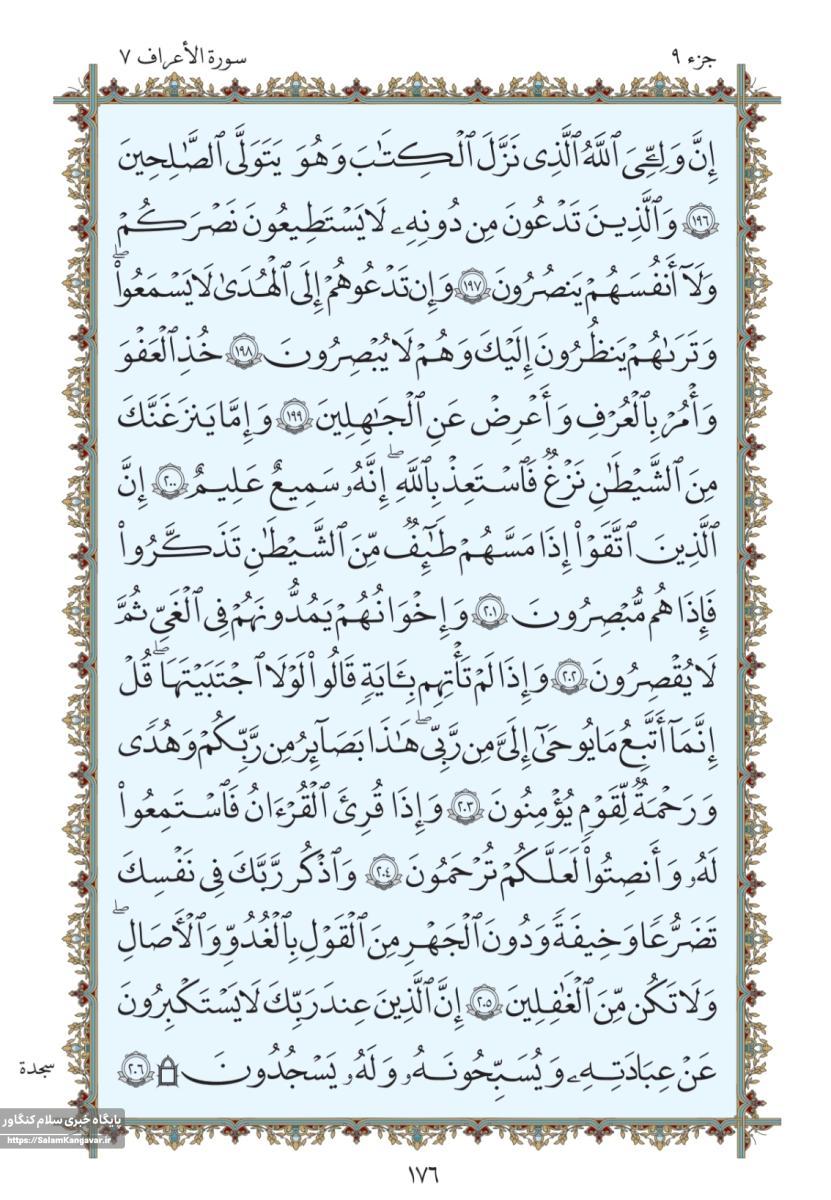 جزء ٩
سورة الأعراف ٧
إِنَّ وَلِـِّۧيَ ٱللَّهُ ٱلَّذِى نَزَّلَ ٱلْكِتَٰبَ وَهُوَ يَتَوَلَّى ٱلصَّٰلِحِينَ
﴿١٩٦﴾ وَٱلَّذِينَ تَدْعُونَ مِن دُونِهِۦ لَا يَسْتَطِيعُونَ نَصْرَكُمْ
وَلَآ أَنفُسَهُمْ يَنصُرُونَ ﴿١٩٧﴾ وَإِن تَدْعُوهُمْ إِلَى ٱلْهُدَىٰ لَا يَسْمَعُوا۟ۖ
وَتَرَىٰهُمْ يَنظُرُونَ إِلَيْكَ وَهُمْ لَا يُبْصِرُونَ ﴿١٩٨﴾ خُذِ ٱلْعَفْوَ
وَأْمُرْ بِٱلْعُرْفِ وَأَعْرِضْ عَنِ ٱلْجَٰهِلِينَ ﴿١٩٩﴾ وَإِمَّا يَنزَغَنَّكَ
مِنَ ٱلشَّيْطَٰنِ نَزْغٌ فَٱسْتَعِذْ بِٱللَّهِۖ إِنَّهُۥ سَمِيعٌ عَلِيمٌ ﴿٢٠٠﴾ إِنَّ
ٱلَّذِينَ ٱتَّقَوْا۟ إِذَا مَسَّهُمْ طَٰٓئِفٌ مِّنَ ٱلشَّيْطَٰنِ تَذَكَّرُوا۟
فَإِذَا هُم مُّبْصِرُونَ ﴿٢٠١﴾ وَإِخْوَانُهُمْ يَمُدُّونَهُمْ فِى ٱلْغَىِّ ثُمَّ
لَا يُقْصِرُونَ ﴿٢٠٢﴾ وَإِذَا لَمْ تَأْتِهِم بِـَٔايَةٍ قَالُوا۟ لَوْلَا ٱجْتَبَيْتَهَاۚ قُلْ
إِنَّمَآ أَتَّبِعُ مَا يُوحَىٰٓ إِلَىَّ مِن رَّبِّىۚ هَٰذَا بَصَآئِرُ مِن رَّبِّكُمْ وَهُدًى
وَرَحْمَةٌ لِّقَوْمٍ يُؤْمِنُونَ ﴿٢٠٣﴾ وَإِذَا قُرِئَ ٱلْقُرْءَانُ فَٱسْتَمِعُوا۟
لَهُۥ وَأَنصِتُوا۟ لَعَلَّكُمْ تُرْحَمُونَ ﴿٢٠٤﴾ وَٱذْكُر رَّبَّكَ فِى نَفْسِكَ
تَضَرُّعًا وَخِيفَةً وَدُونَ ٱلْجَهْرِ مِنَ ٱلْقَوْلِ بِٱلْغُدُوِّ وَٱلْءَاصَالِۖ
وَلَا تَكُن مِّنَ ٱلْغَٰفِلِينَ ﴿٢٠٥﴾ إِنَّ ٱلَّذِينَ عِندَ رَبِّكَ لَا يَسْتَكْبِرُونَ
عَنْ عِبَادَتِهِۦ وَيُسَبِّحُونَهُۥ وَلَهُۥ يَسْجُدُونَ ۩ ﴿٢٠٦﴾
سجدة
پایگاه خبری سلام کنگاور
https://SalamKangavar.ir
١٧٦